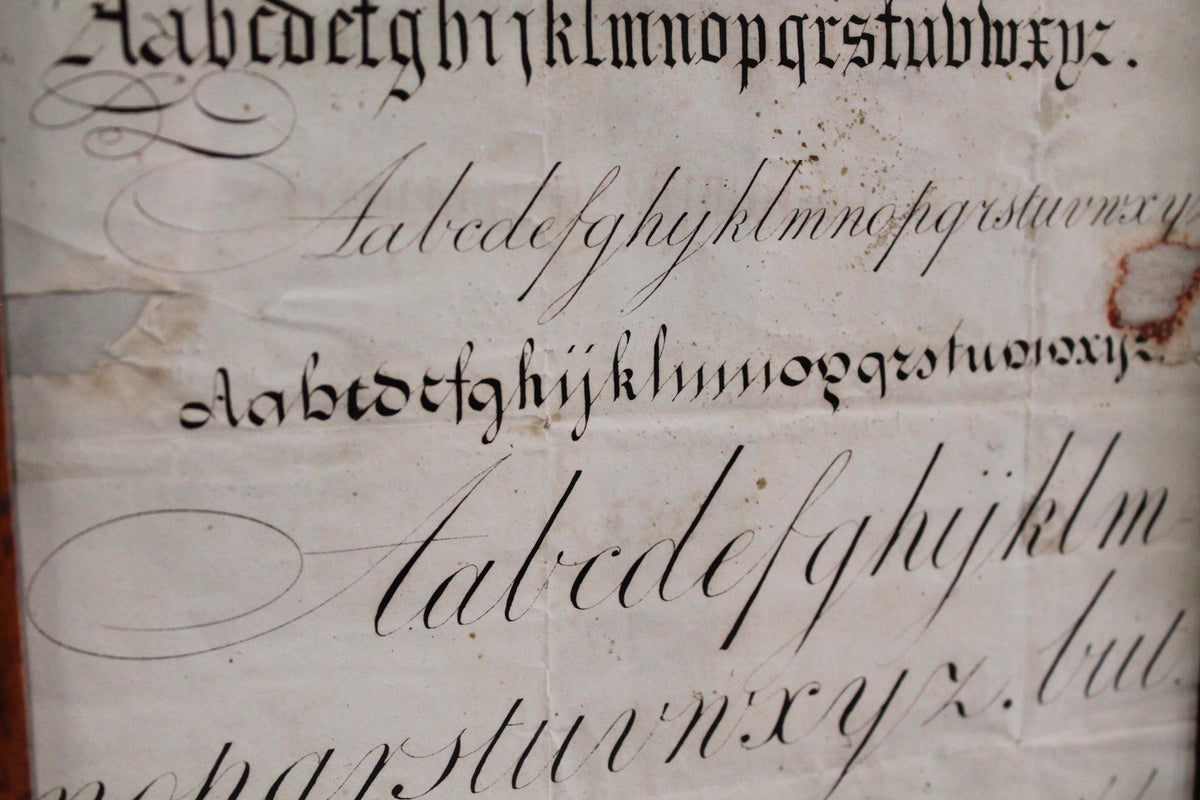 Aabcdefghijklmnopqrstuvwxyz.
Aabcdefghijklmnopqrstuvwxy
Aabcdefghijklmnopqrstuvwxyz.
Aabcdefghijklm
nopqrstuvwxyz. but.